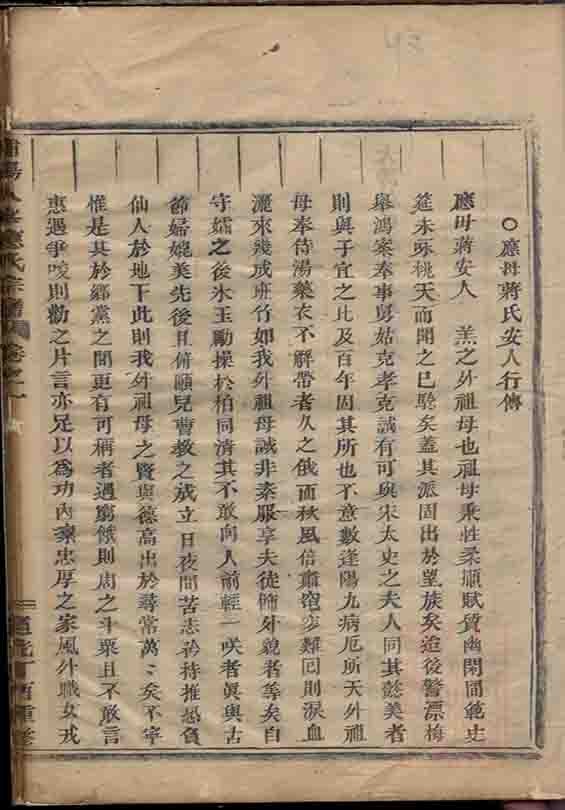 ○應母蔣氏安人行傳
應母蔣安人 羔之外祖母也祖母秉性柔順賦質幽閑閫範史
筵未咏桃夭而聞之已駿矣蓋其派固出於望族矣迨後警漂梅
舉鴻案奉事舅姑克孝克誠有可與宋太史之夫人同其懿美者
則與子宜之比及百年固其所也不意數逢陽九病厄所天外祖
母奉侍湯藥衣不解帶者久之俄而秋風倍肅窀穸難回則淚血
灑來幾成斑竹如我外祖母誠非素服享夫徒飾外貌者等矣自
守孀之後氷玉勵操松柏同清其不敢向人前輕一咲者眞與古
節婦媲美先後且俯頤兒曹教之成立日夜間苦志矜持推恐負
仙人於地下此則我外祖母之賢與德高出於尋常萬萬矣不寧
惟是其於鄉黨之間更有可稱者遇窮餓則周之斗粟且不敢言
惠遇爭唆則勸之片言亦足以為功內秉忠厚之家風外職女戎
氏宗譜 卷之一
道光丁酉重修